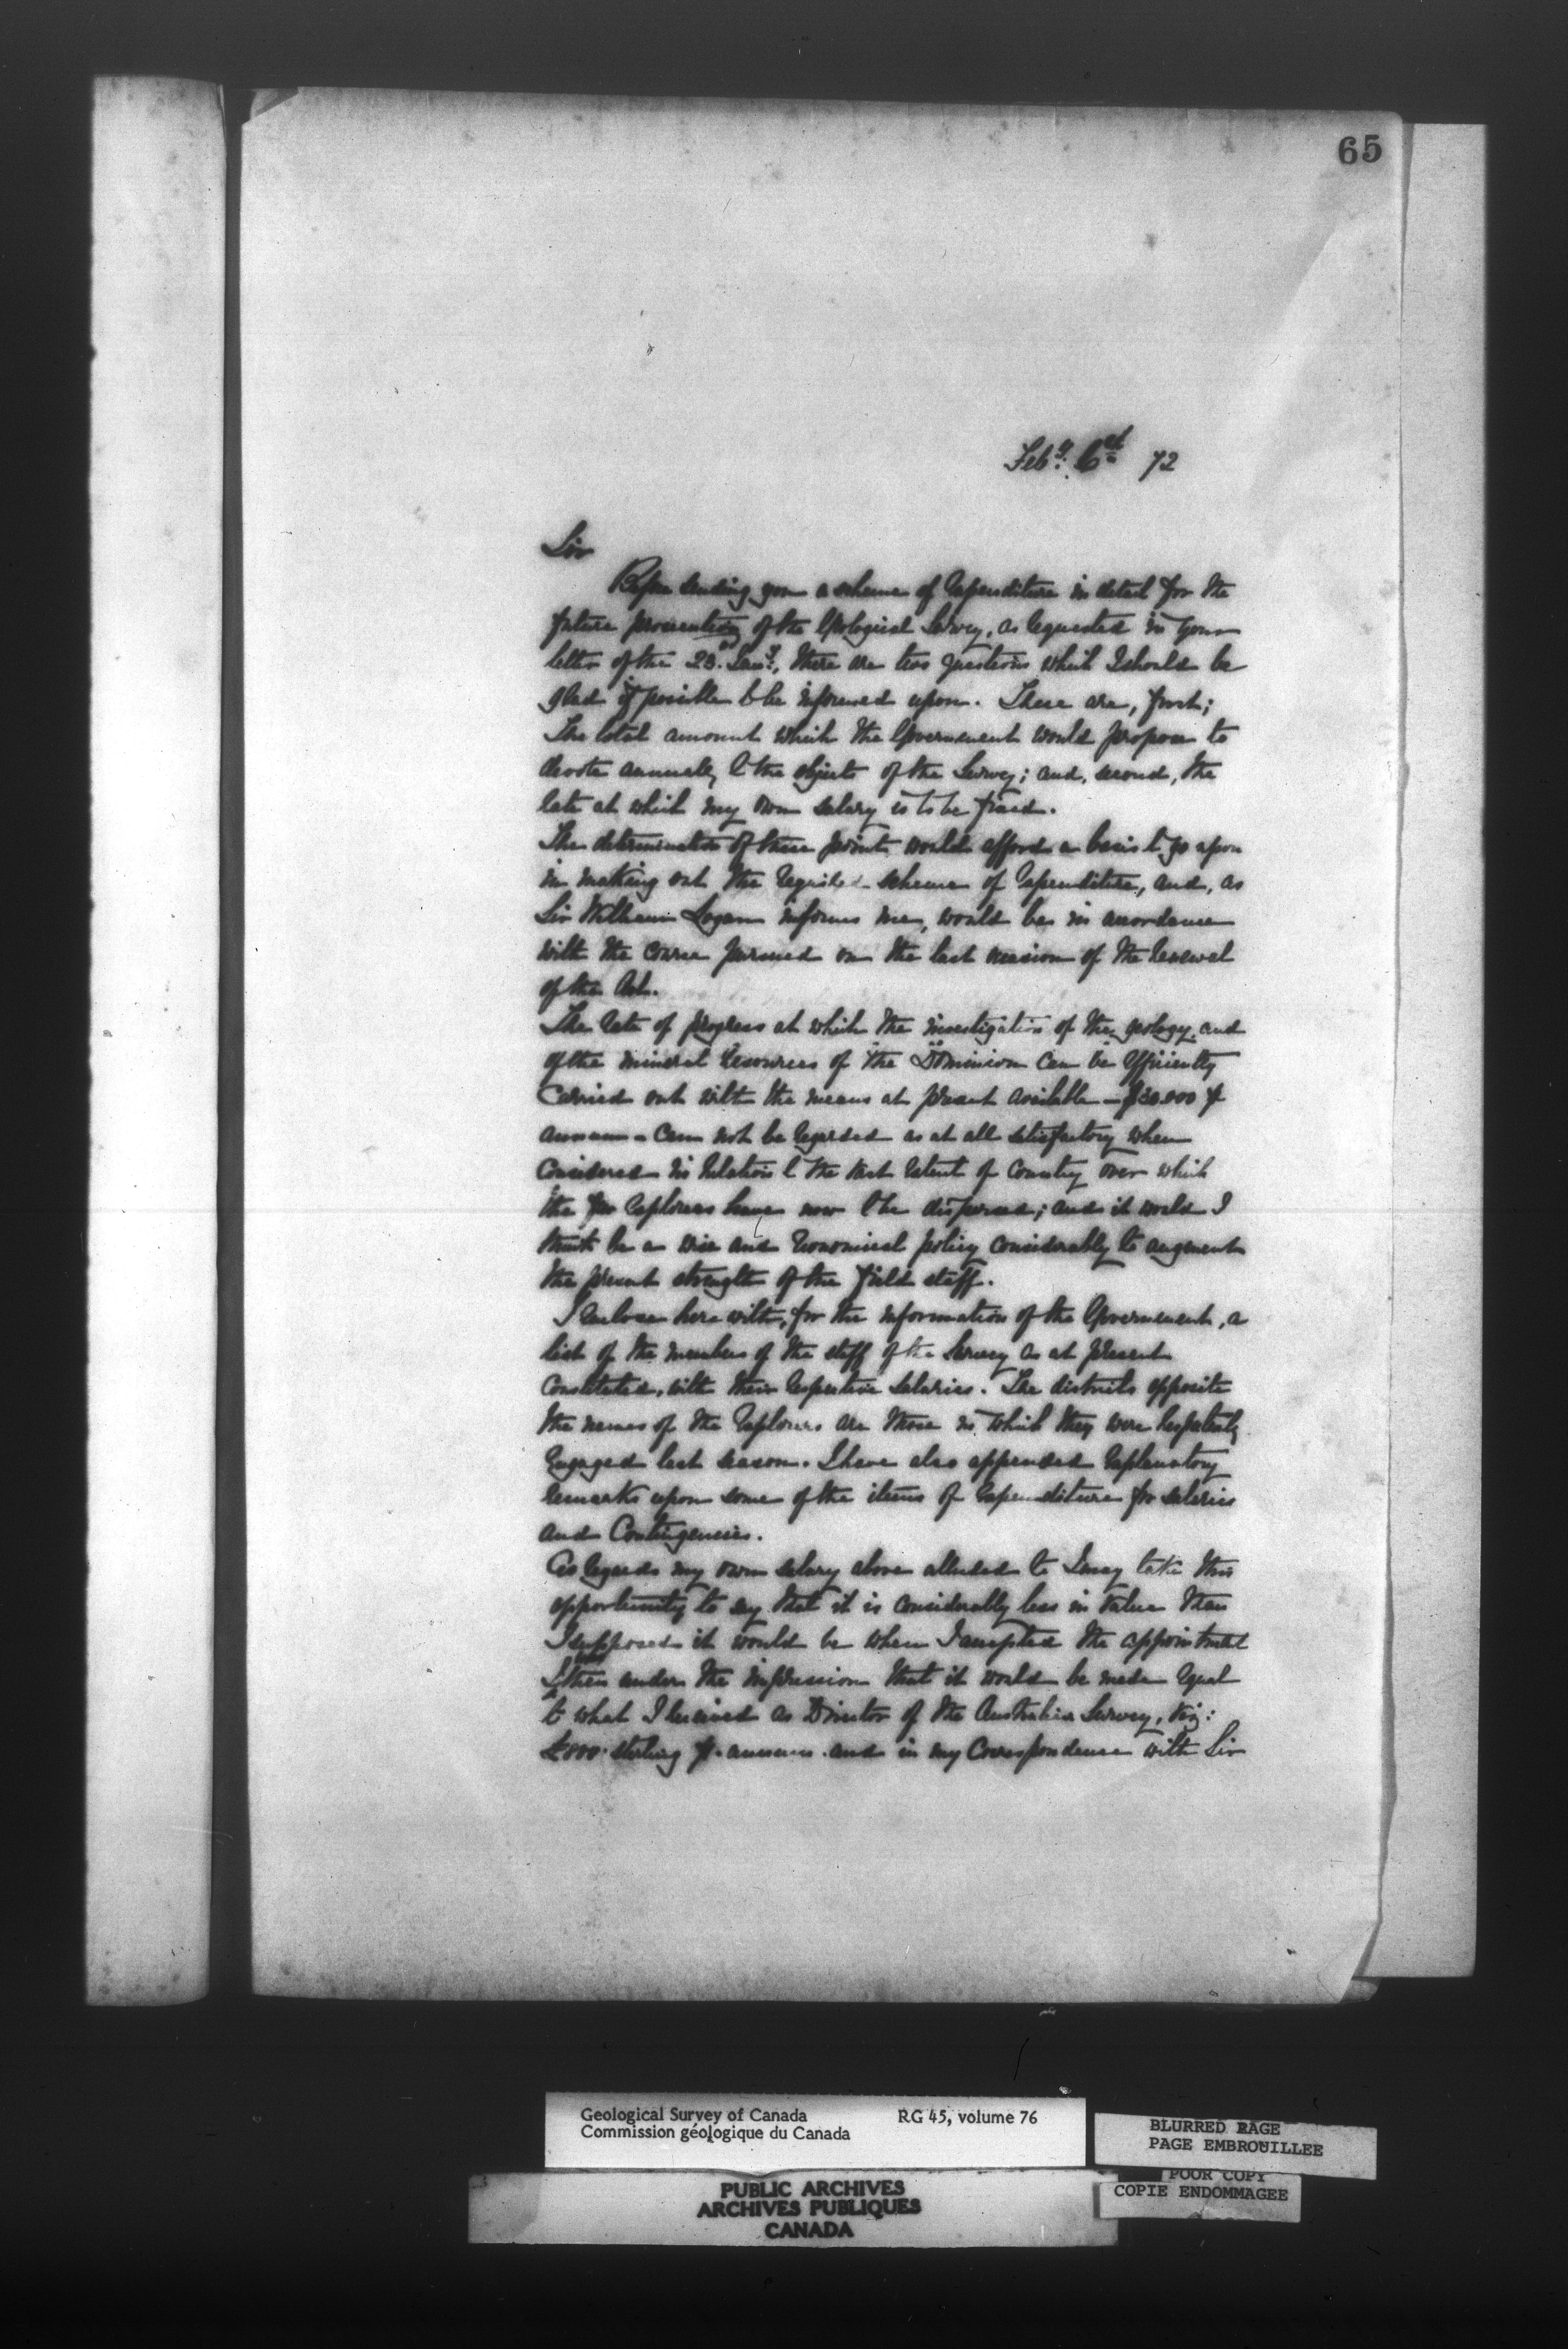 65
Feby. 6th 72
Sir
Before sending you a scheme of expenditure in detail for the
future prosecution of the Geological Survey, as requested in your
letter of the 23rd Jany., there are two questions which I should be
glad if possible to be informed upon. These are, first;
The total amount which the Government would propose to
devote annually to the objects of the Survey; and, second, the
rate at which my own salary is to be fixed.
The determination of these points would afford a basis to go upon
in making out the required scheme of expenditure, and, as
Sir William Logan informs me, would be in accordance
with the course pursued on the last occasion of the renewal
of the Act.
The rate of progress at which the investigation of the geology and
of the mineral resources of the Dominion can be efficiently
carried out with the means at present available — $30.000 ⅌
annum - can not be regarded as at all satisfactory when
considered in relation to the vast extent of country over which
the few explorers have now to be dispersed; and it would I
think be a wise and economical policy considerably to augment
the present strength of the field staff.
I enclose herewith, for the information of the Government, a
list of the members of the staff of the Survey as at present
constituted, with their respective salaries. The districts opposite
the names of the explorers are those in which they were respectively
engaged last season. I have also appended explanatory
remarks upon some of the items of expenditure for salaries
and Contingencies.
As regards my own salary above alluded to I may take this
opportunity to say that it is considerably less in value than
I supposed it would be when I accepted the appointment
I was then under the impression that it would be made equal
to what I received as Director of the Australian Survey, viz:
£800. sterling ⅌ annum. and in my Correspondence with Sir
Geological Survey of Canada RG 45, volume 76
Commission géologique du Canada
BLURRED PAGE
PAGE EMBROUILLEE
POOR COPY
COPIE ENDOMMAGEE
PUBLIC ARCHIVES
ARCHIVES PUBLIQUES
CANADA